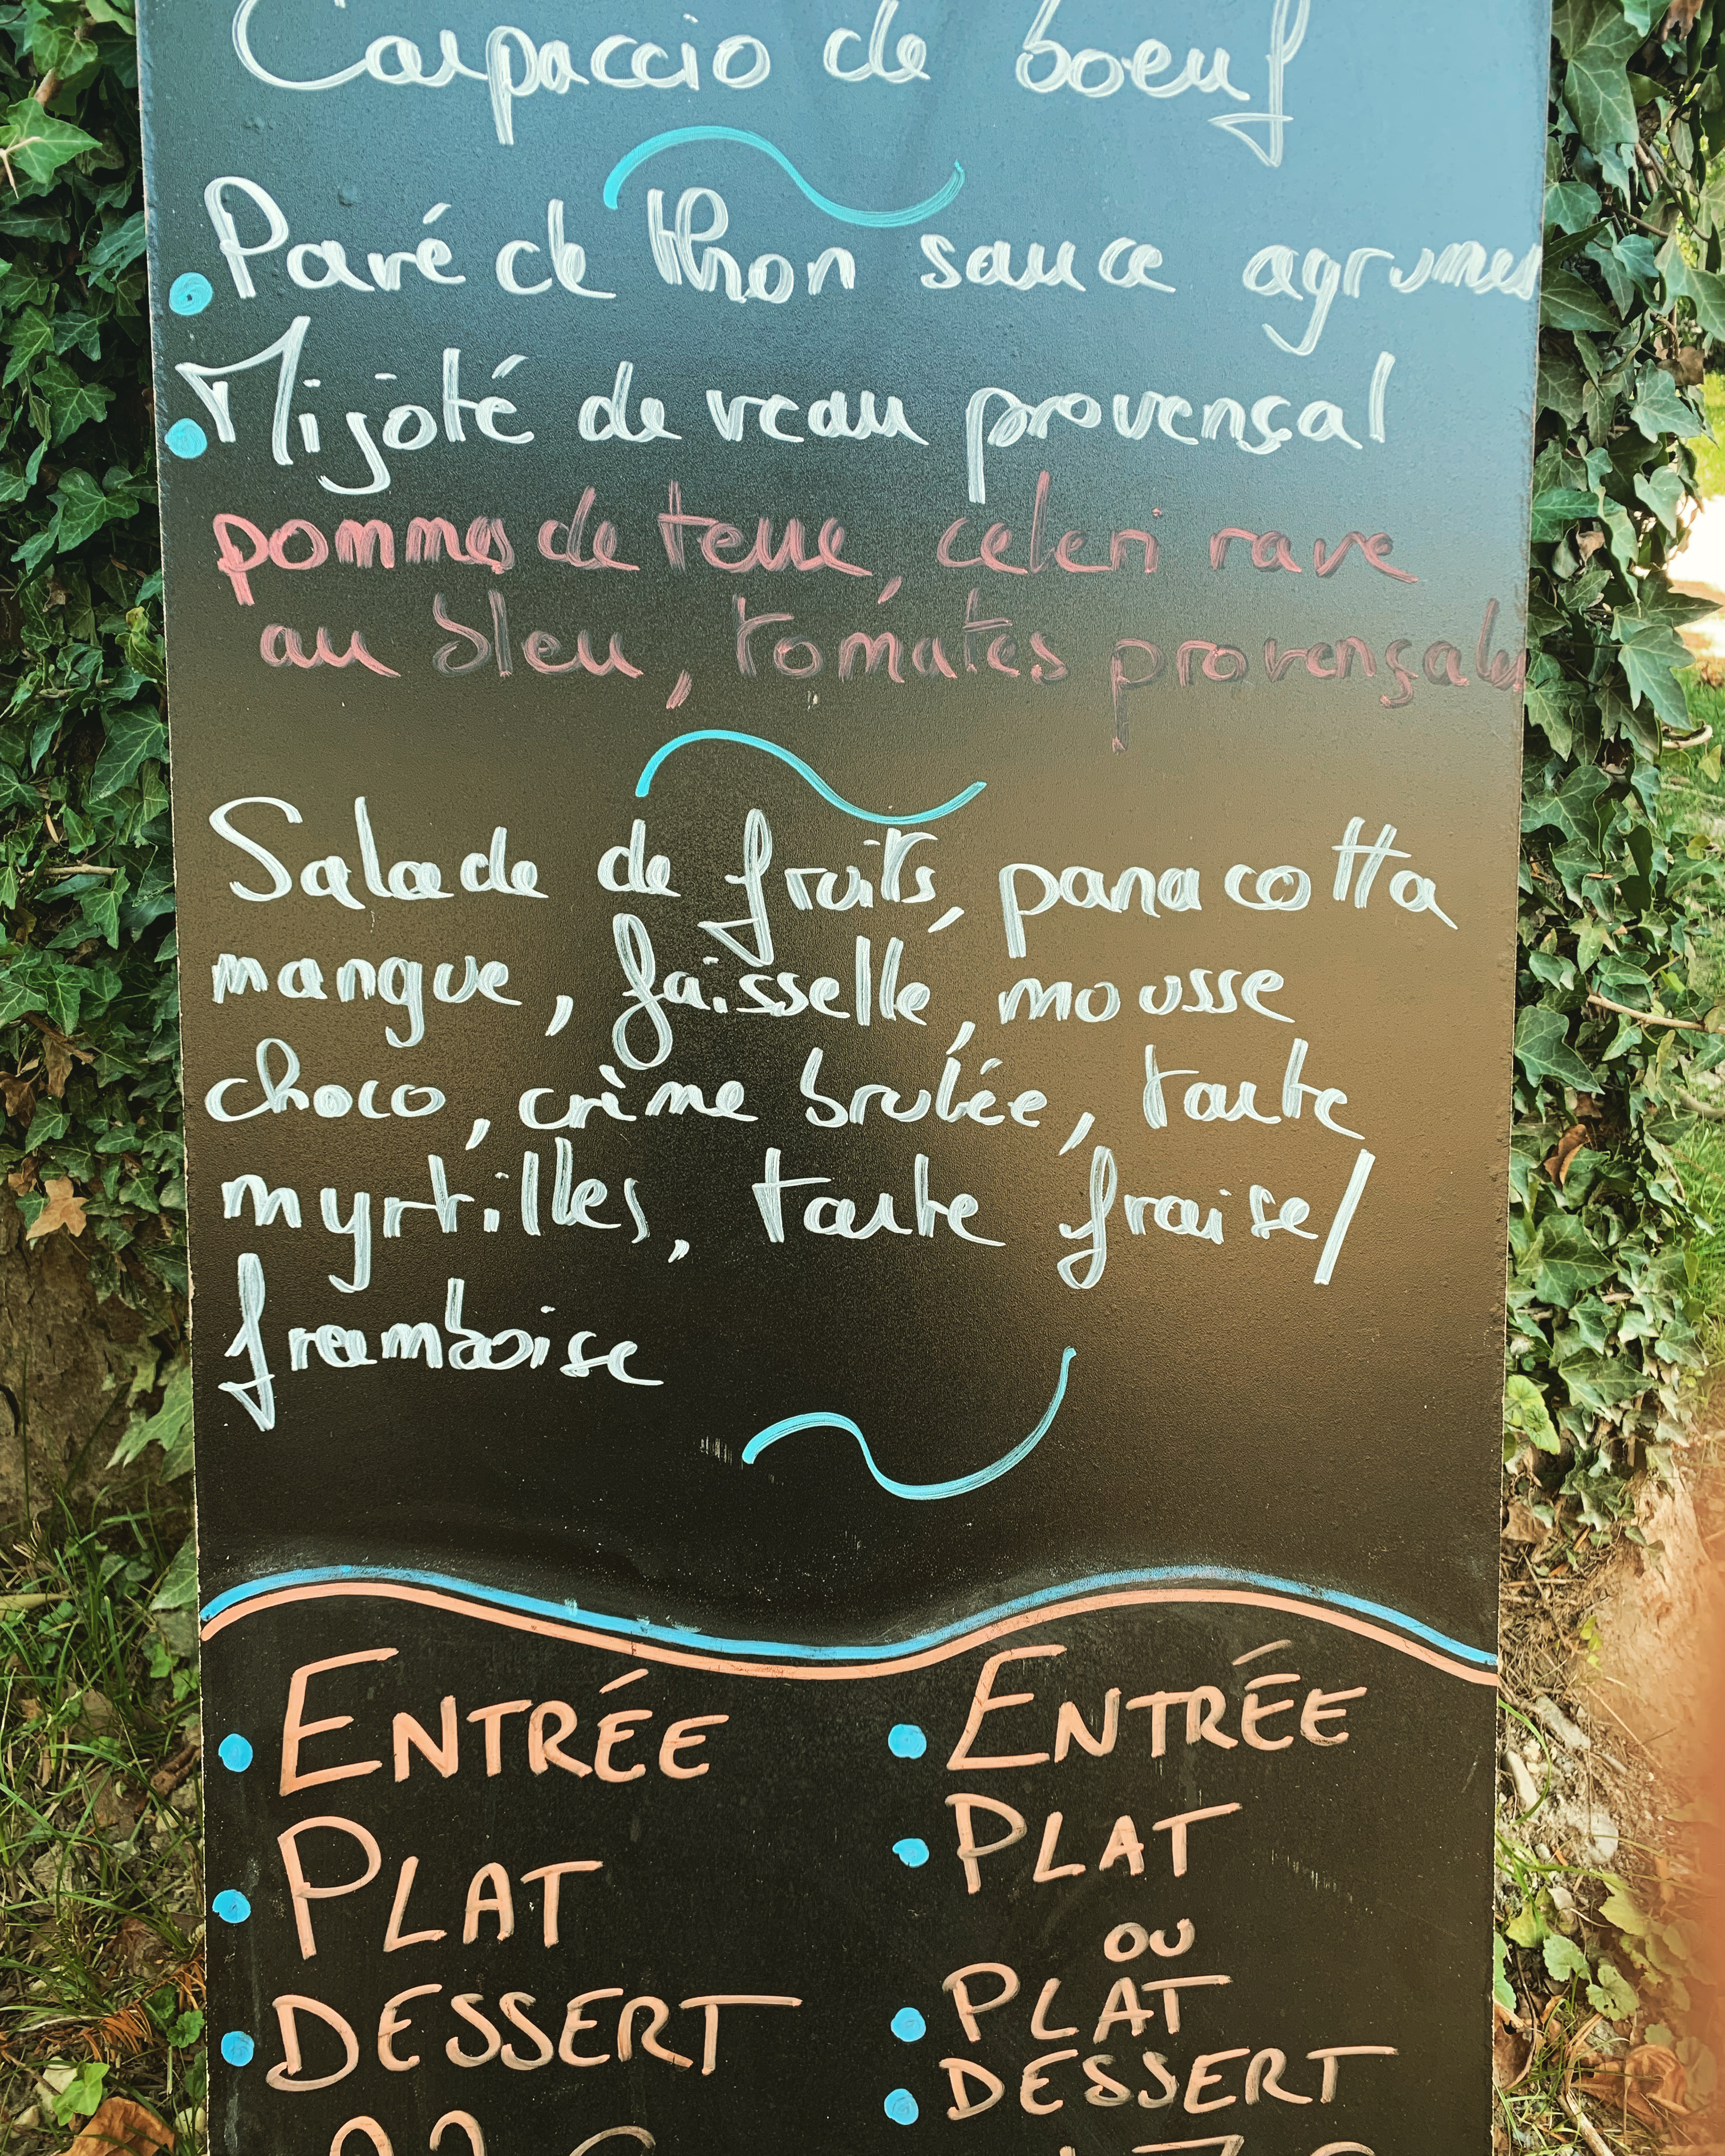 Carpaccio de boeuf
Pavé de thon sauce agrumes
Mijoté de veau provençal
pommes de terre, celeri rave
au bleu, tomates provençales
Salade de fruits, panacotta
mangue, faisselle, mousse
choco, crème brulée, tarte
myrtilles, tarte fraise/
framboise
ENTRÉE
PLAT
DESSERT
ENTRÉE
PLAT
OU
PLAT
DESSERT